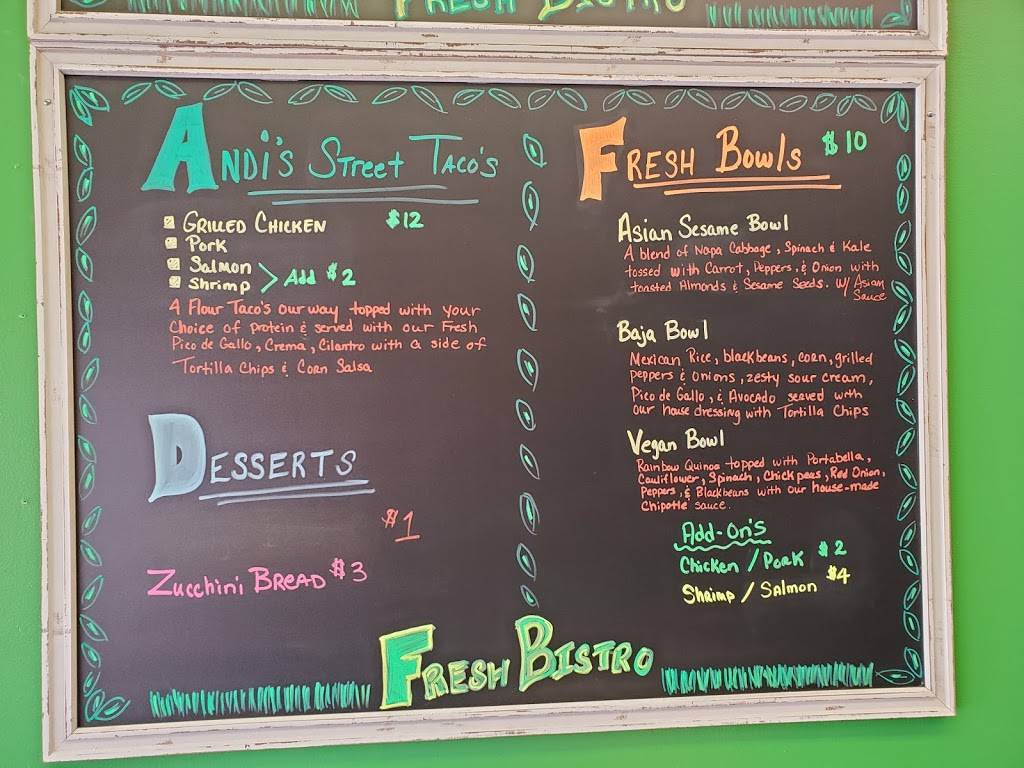 FRESH BISTRO
ANDi's STREET TACO's
GRILLED CHICKEN $12
Pork
Salmon
Shrimp > Add $2
4 Flour Taco's our way topped with your
Choice of protein & served with our Fresh
Pico de Gallo, Crema, Cilantro with a side of
Tortilla Chips & Corn Salsa
DESSERTS
$1
Zucchini BREAD $3
FRESH BOWLS $10
Asian Sesame Bowl
A blend of Napa Cabbage, Spinach & Kale
tossed with Carrot, Peppers, & Onion with
toasted Almonds & Sesame Seeds. w/ Asian
Sauce
Baja Bowl
Mexican Rice, blackbeans, corn, grilled
peppers & onions, zesty sour cream,
Pico de Gallo, & Avocado served with
our house dressing with Tortilla Chips
Vegan Bowl
Rainbow Quinoa topped with Portabella,
Cauliflower, Spinach, Chickpeas, Red Onion,
Peppers, & Blackbeans with our house-made
Chipotle sauce.
Add-On's
Chicken / Pork $2
Shrimp / Salmon $4
FRESH BISTRO